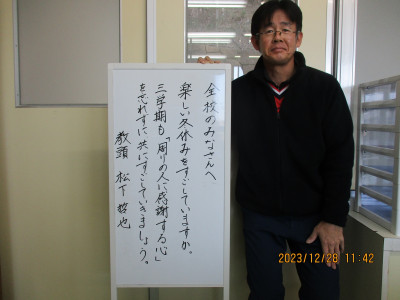 全校のみなさんへ
楽しい冬休みをすごしていますか。
三学期も「周りの人に感謝する心」
を忘れずに共にすごしていきましょう。
教頭 松下 哲也
2023/12/28 11:42